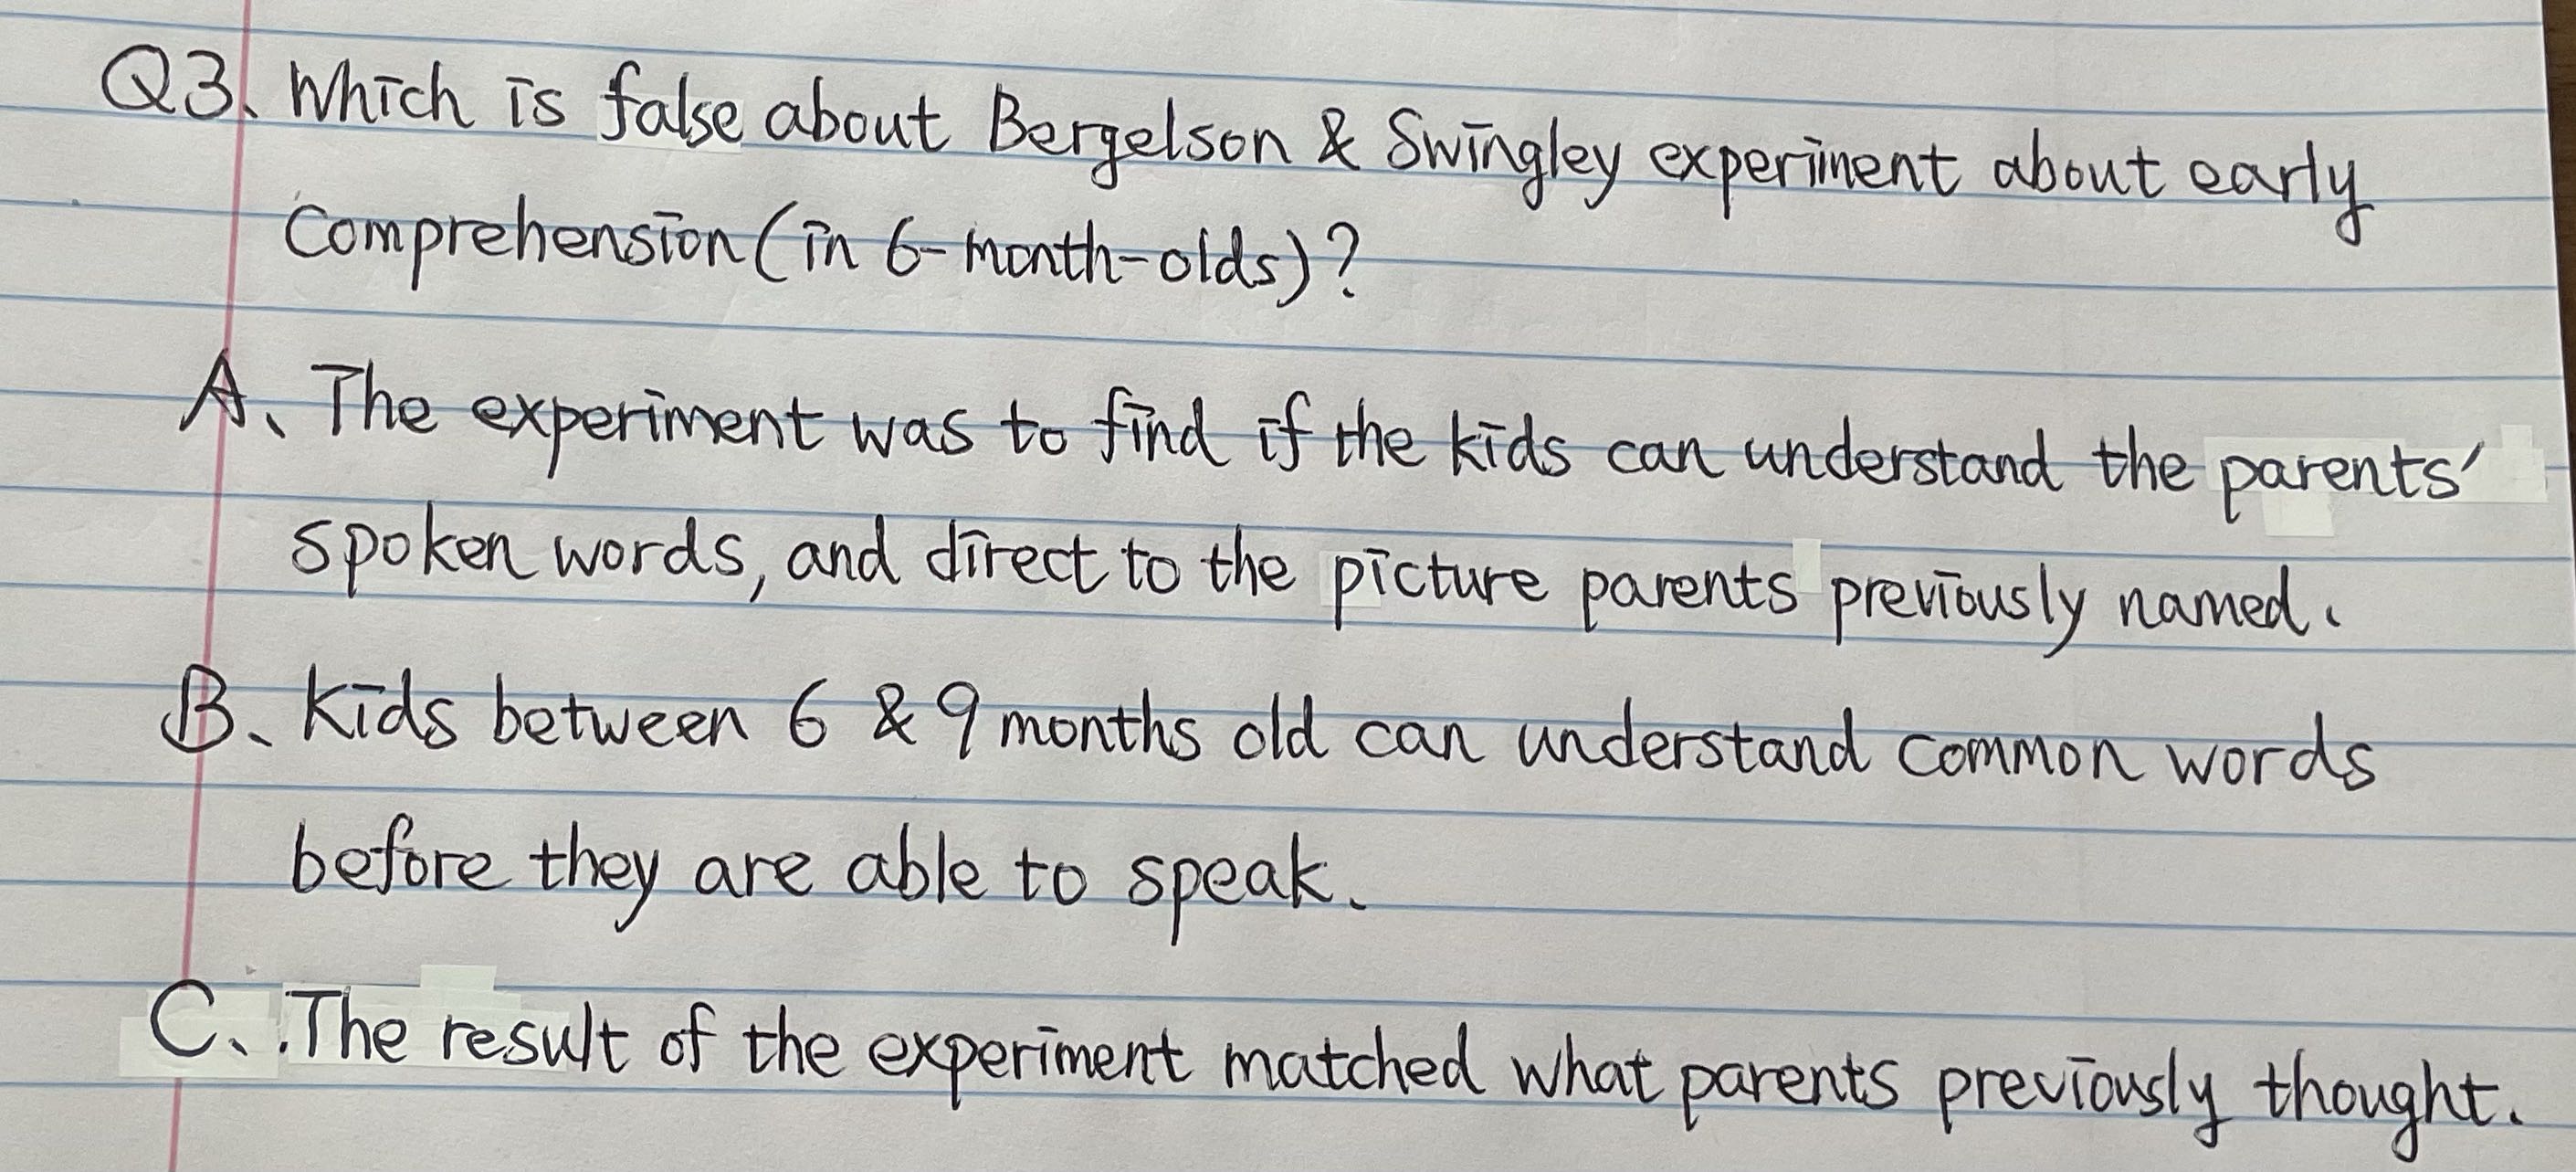 Q3. Which is false about Bergelson & Swingley experiment about early
Comprehension (in 6-month-olds)?
A. The experiment was to find if the kids can understand the parents'
spoken words, and direct to the picture parents previously named.
B. Kids between 6 & 9 months old can understand common words
before they are able to speak.
C. The result of the experiment matched what parents previously thought.